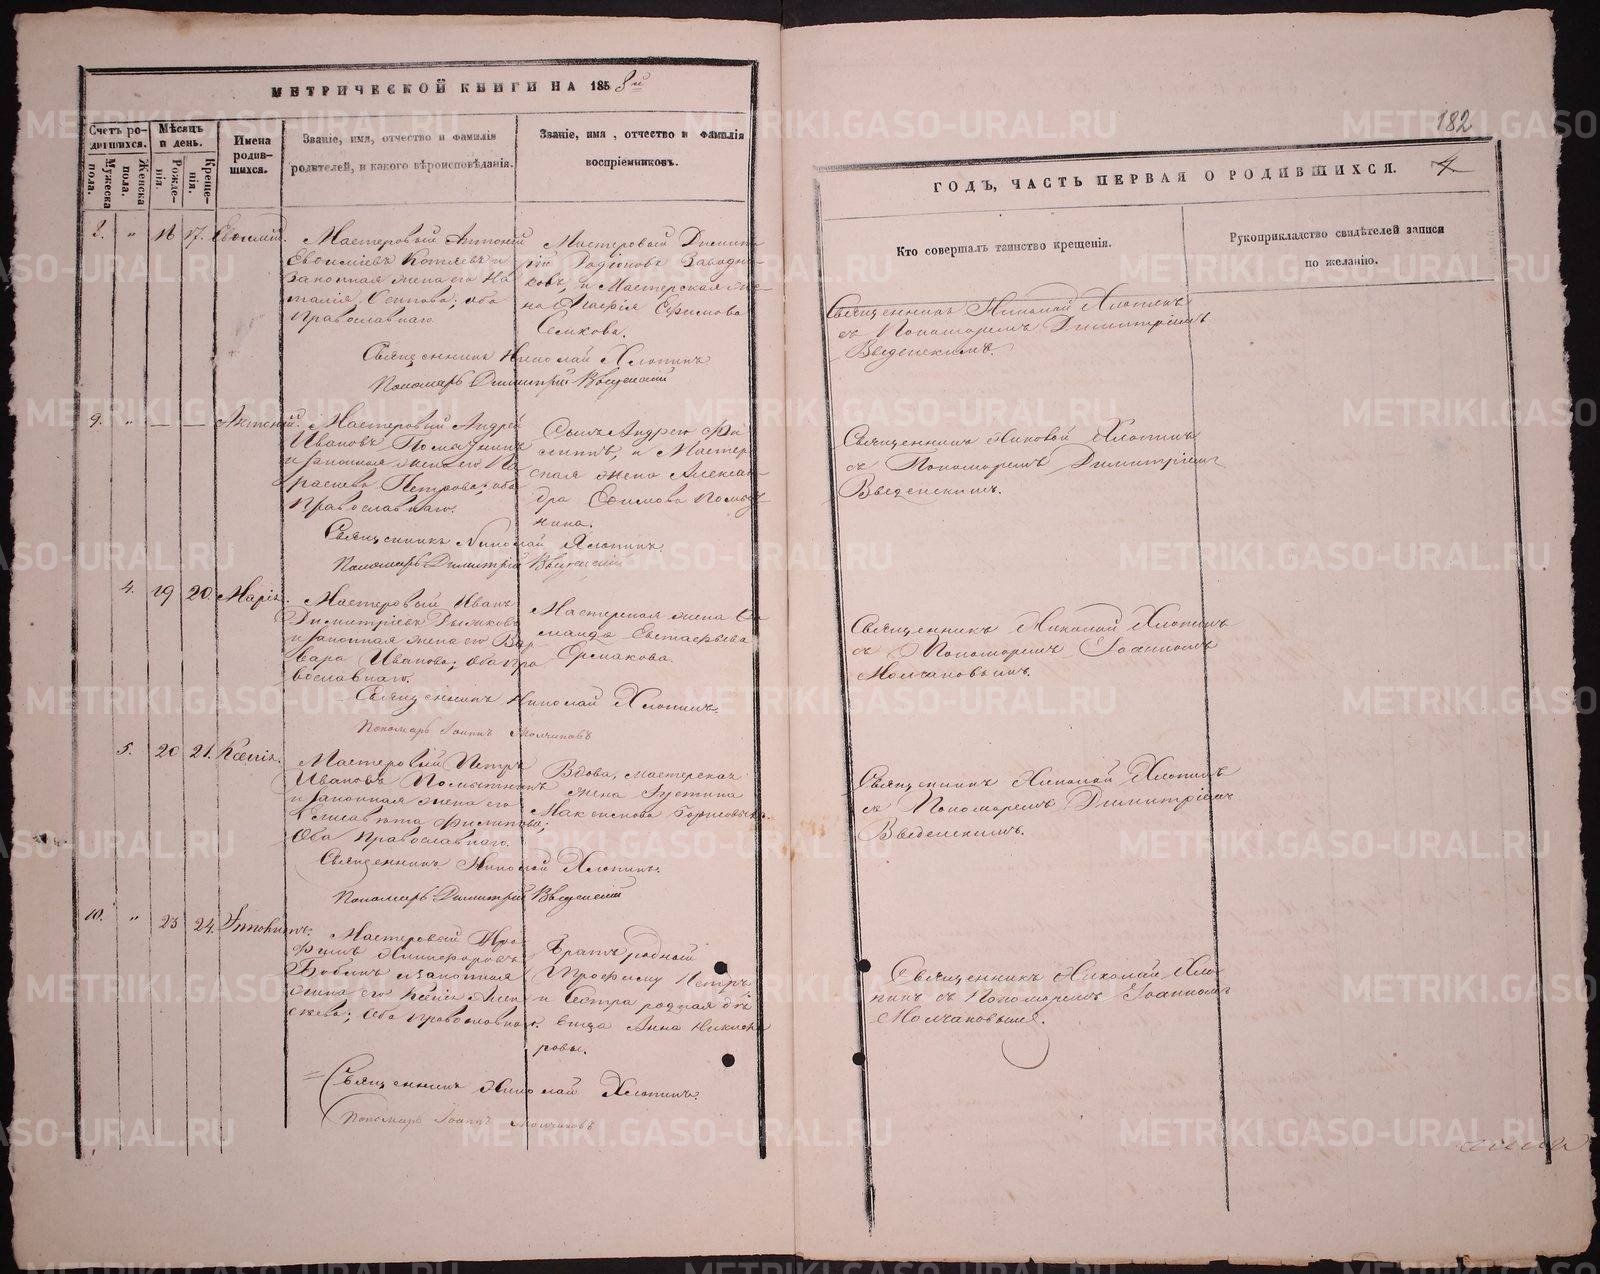 МЕТРИЧЕСКОЙ КНИГИ НА 1858й
Счетъ родившихся.
Мужеска пола.
Женска пола.
Мѣсяцъ и день.
Рожденія.
Крещенія.
Имена родившихся.
Званіе, имя, отчество и фамилія
родителей, и какого вѣроисповѣданія.
Званіе, имя, отчество и фамилія
воспріемниковъ.
8. " 16 17. Евѳимій.
Мастеровый Антоній
Евѳиміевъ и
законная жена его На
талія Осипова; оба
Православнаго.
Мастеровый Димит
рій Родіоновъ Заводчи
ковъ, и Мастерская же
на Ефимова
Семкова.
Священникъ Николай Хлопинъ
Пономарь Димитрій Введенскій
9. " — — Антоній.
Мастеровый Андрей
Ивановъ
и законная жена его Па
раскева Петрова; оба
Православнаго.
Сынъ Андрею Фи
липпъ, и Мастер
ская жена Алексан
дра Евѳимова
нина.
Священникъ Николай Хлопинъ.
Пономарь Димитрій Введенскій
4. 19 20. Марія.
Мастеровый Иванъ
Димитріевъ
и законная жена его Вар
вара Иванова; оба Пра
вославнаго.
Мастерская жена Со
Евстафьева
Ермакова.
Священникъ Николай Хлопинъ.
Пономарь Іоаннъ Молчановъ
5. 20 21. Ксенія.
Мастеровый Петръ
Ивановъ
и законная жена его
Елисавета Филипова;
Оба Православнаго.
Вдова, мастерская
жена Іустина
Максимова
Священникъ Николай Хлопинъ.
Пономарь Димитрій Введенскій
10. " 23 24.
Мастеровый Тро
фимъ Никифоровъ
Бобинъ и законная
жена его Ксенія Алек
сѣева; Оба Православнаго.
Братъ родный
Трофиму Петръ
и Сестра родная дѣ
вица Анна Никифо
ровы.
Священникъ Николай Хлопинъ.
Пономарь Іоаннъ Молчановъ
182
ГОДЪ, ЧАСТЬ ПЕРВАЯ О РОДИВШИХСЯ.
Кто совершалъ таинство крещенія.
Рукоприкладство свидѣтелей записи
по желанію.
Священникъ Николай Хлопинъ
съ Пономаремъ Димитріемъ
Введенскимъ.
Священникъ Николай Хлопинъ
съ Пономаремъ Димитріемъ
Введенскимъ.
Священникъ Николай Хлопинъ
съ Пономаремъ Іоанномъ
Молчановымъ.
Священникъ Николай Хлопинъ
съ Пономаремъ Димитріемъ
Введенскимъ.
Священникъ Николай Хло
пинъ съ Пономаремъ Іоанномъ
Молчановымъ.
METRIKI.GASO-URAL.RU